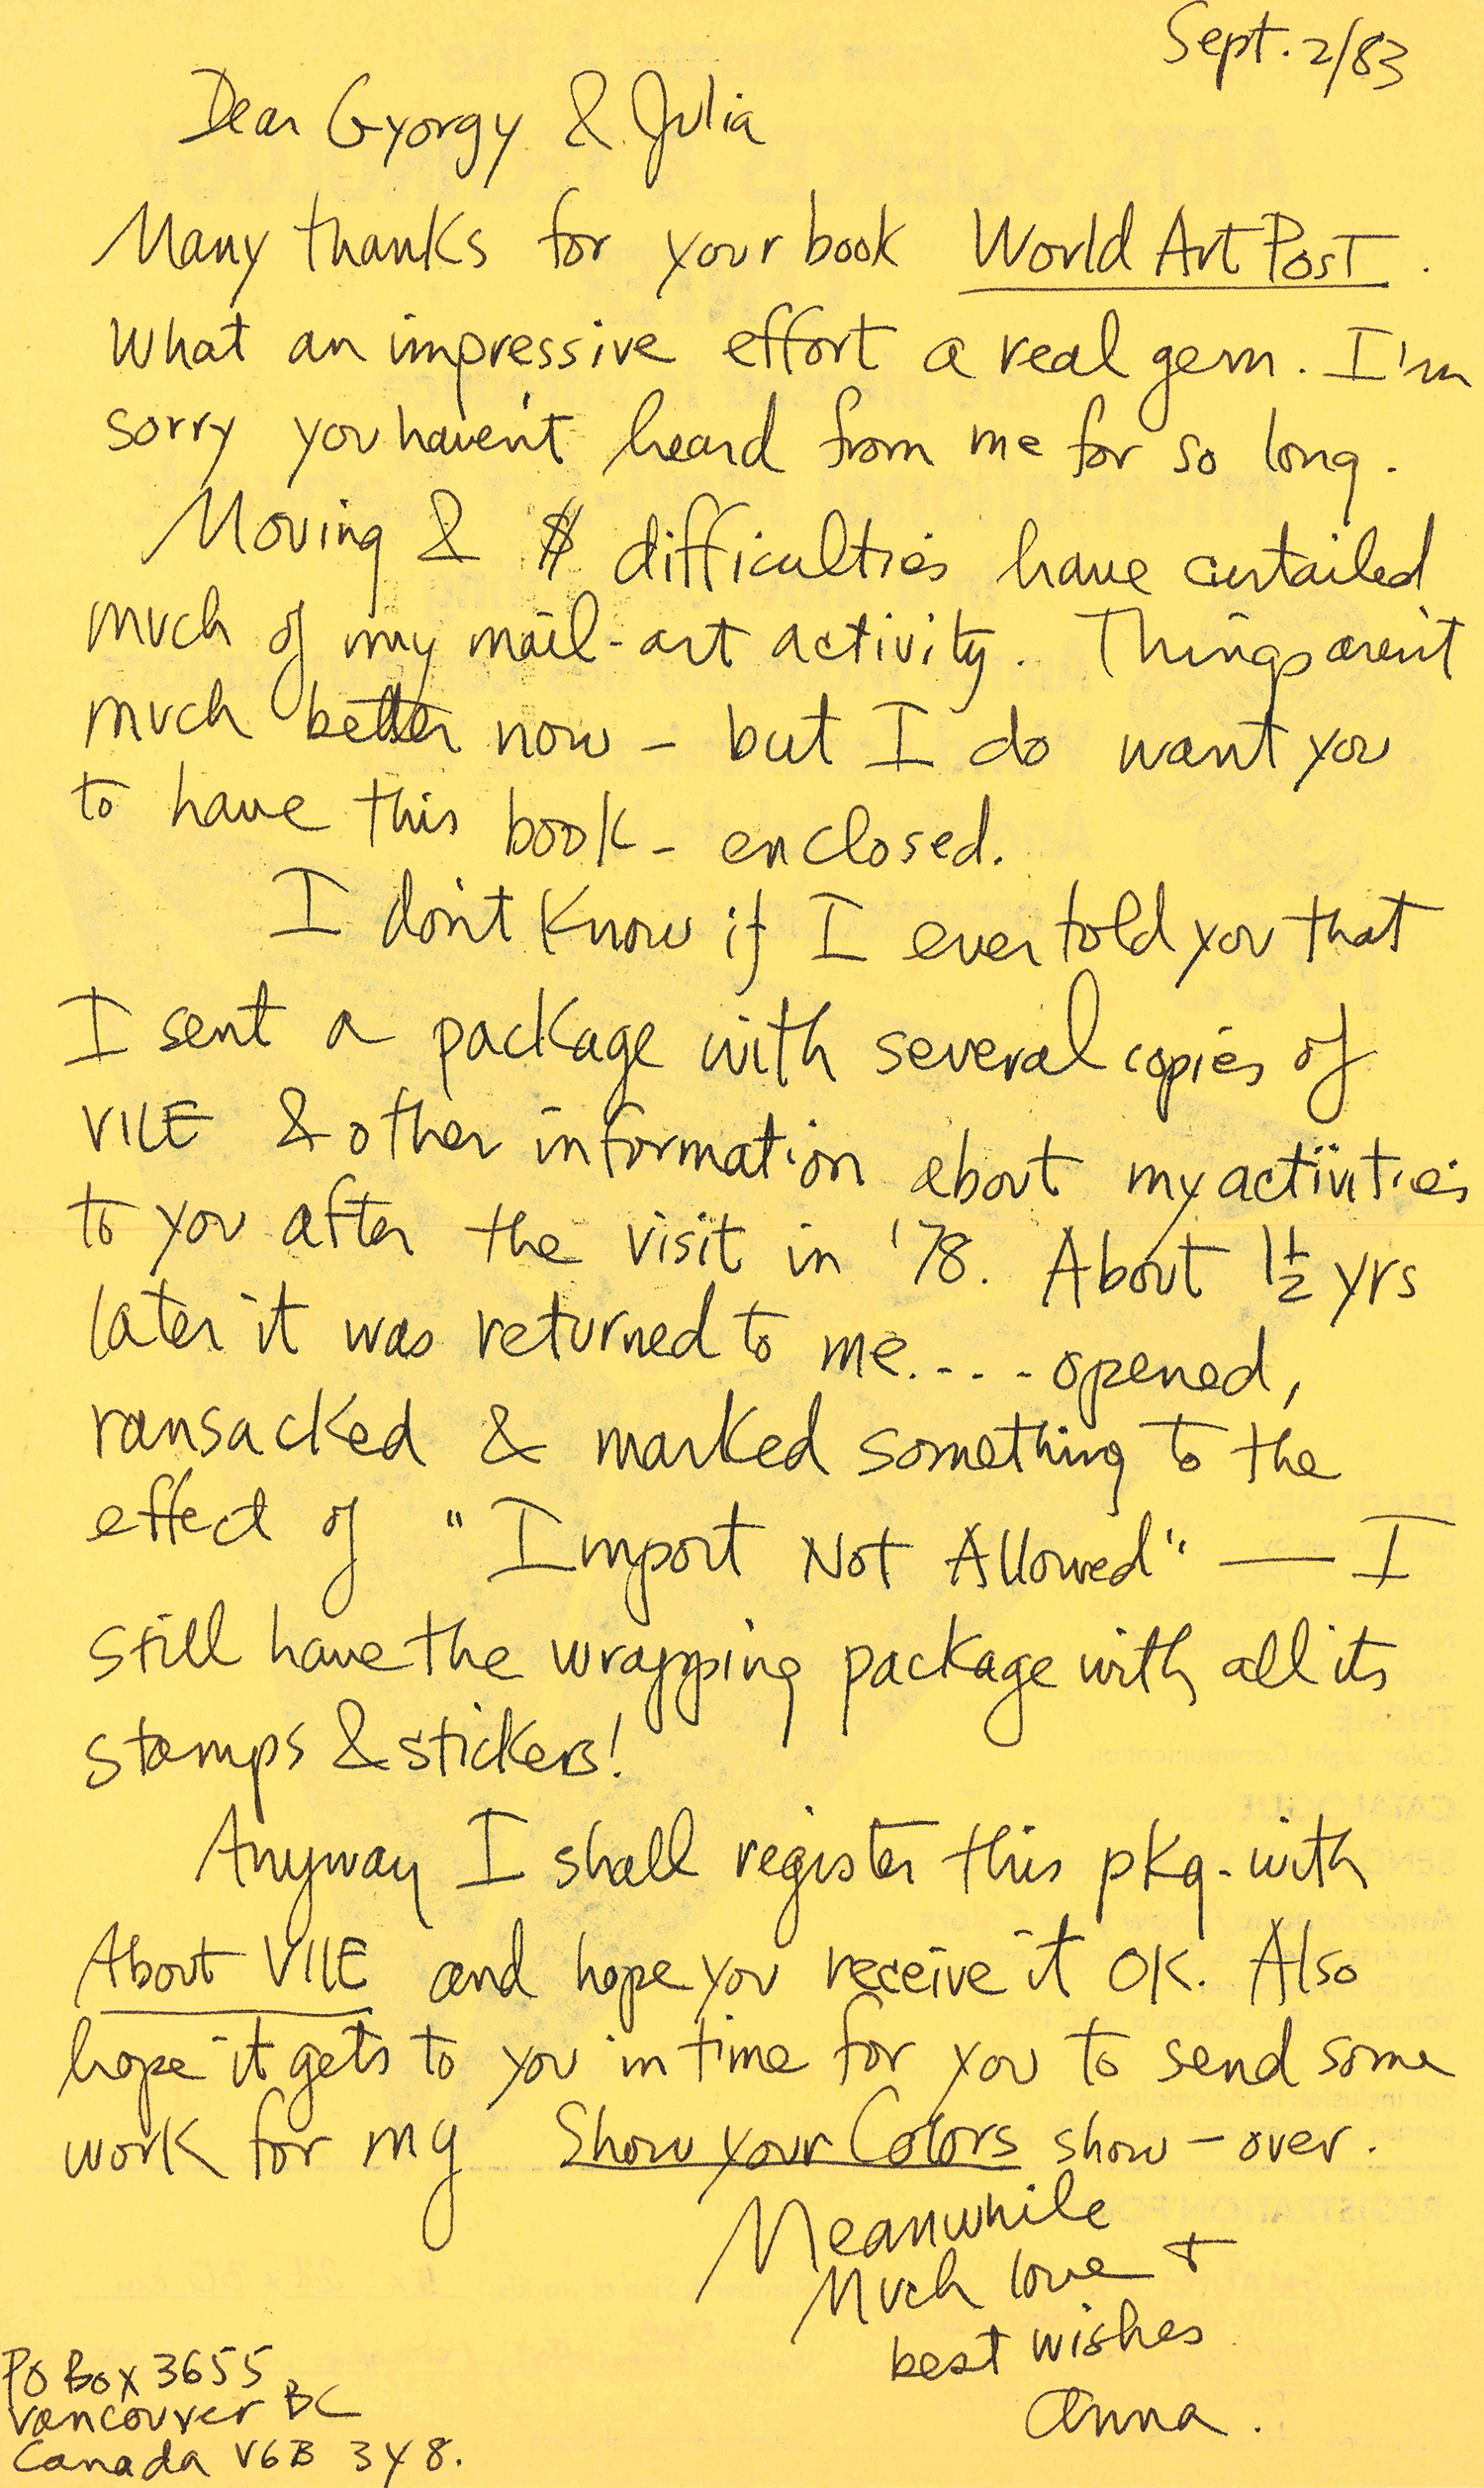 Sept. 2/83
Dear Gyorgy & Julia
Many thanks for your book World Art Post.
What an impressive effort a real gem. I'm
sorry you haven't heard from me for so long.
Moving & $ difficulties have curtailed
much of my mail-art activity. Things aren't
much better now - but I do want you
to have this book - enclosed.
I don't know if I ever told you that
I sent a package with several copies of
VILE & other information about my activities
to you after the visit in '78. About 1½ yrs
later it was returned to me.... opened,
ransacked & marked something to the
effect of "Import Not Allowed" — I
still have the wrapping package with all its
stamps & stickers!
Anyway I shall register this pkg - with
About VILE and hope you receive it OK. Also
hope it gets to you in time for you to send some
work for my Show Your Colors show - over.
Meanwhile
Much love +
best wishes
Anna.
PO Box 3655
Vancouver BC
Canada V6B 3Y8.